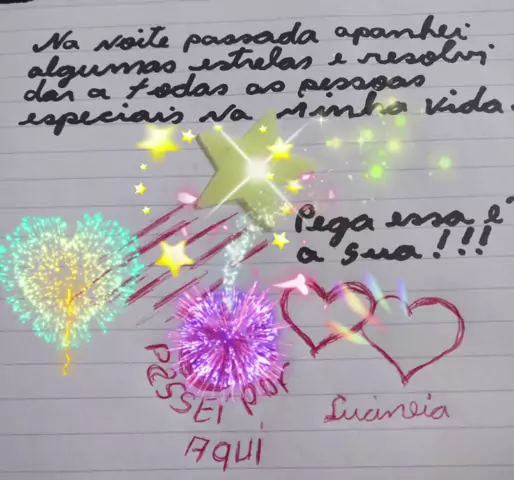 Na noite passada apanhei
algumas estrelas e resolvi
dar a todas as pessoas
especiais na minha vida.
Pega essa é
a sua!!!
Lucineia
PASSEI POR
AQUI,